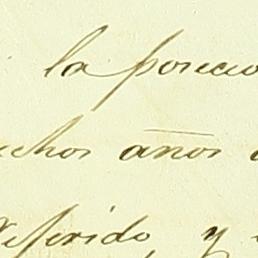 la posicio
uchos años
referido, y